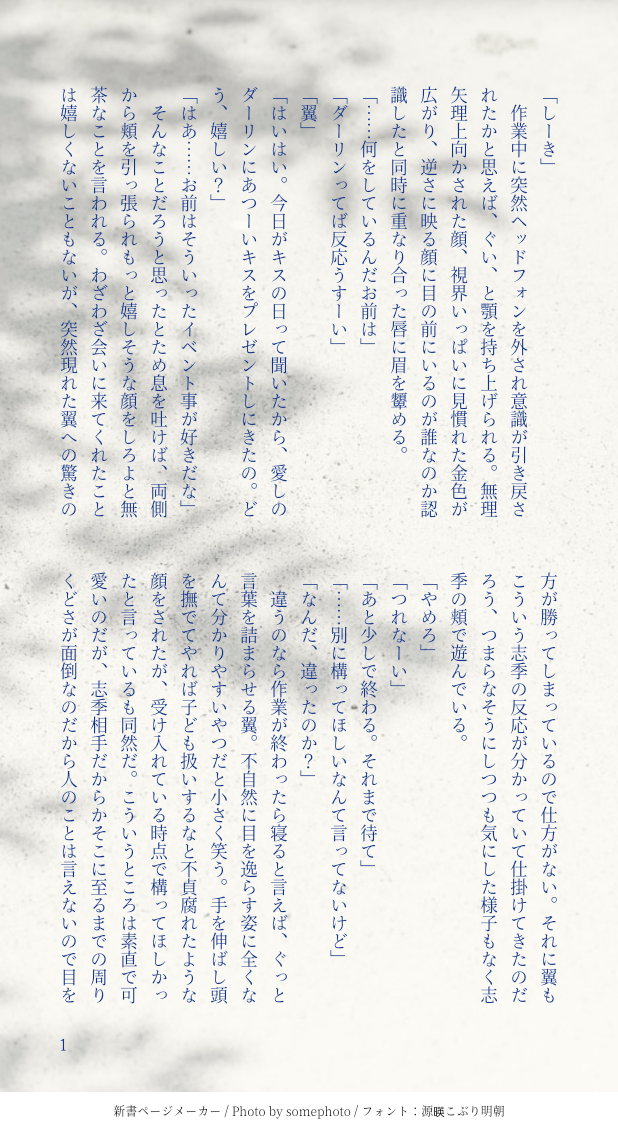 「しーき」
　作業中に突然ヘッドフォンを外され意識が引き戻さ
れたかと思えば、ぐい、と顎を持ち上げられる。無理
矢理上向かされた顔、視界いっぱいに見慣れた金色が
広がり、逆さに映る顔に目の前にいるのが誰なのか認
識したと同時に重なり合った唇に眉を顰める。
「……何をしているんだお前は」
「ダーリンってば反応うすーい」
「翼」
「はいはい。今日がキスの日って聞いたから、愛しの
ダーリンにあつーいキスをプレゼントしにきたの。ど
う、嬉しい？」
「はあ……お前はそういったイベント事が好きだな」
　そんなことだろうと思ったとため息を吐けば、両側
から頬を引っ張られもっと嬉しそうな顔をしろよと無
茶なことを言われる。わざわざ会いに来てくれたこと
は嬉しくないこともないが、突然現れた翼への驚きの
方が勝ってしまっているので仕方がない。それに翼も
こういう志季の反応が分かっていて仕掛けてきたのだ
ろう、つまらなそうにしつつも気にした様子もなく志
季の頬で遊んでいる。
「やめろ」
「つれなーい」
「あと少しで終わる。それまで待て」
「……別に構ってほしいなんて言ってないけど」
「なんだ、違ったのか？」
　違うのなら作業が終わったら寝ると言えば、ぐっと
言葉を詰まらせる翼。不自然に目を逸らす姿に全くな
んて分かりやすいやつだと小さく笑う。手を伸ばし頭
を撫でてやれば子ども扱いするなと不貞腐れたような
顔をされたが、受け入れている時点で構ってほしかっ
たと言っているも同然だ。こういうところは素直で可
愛いのだが、志季相手だからかそこに至るまでの周り
くどさが面倒なのだから人のことは言えないので目を
1
新書ページメーカー / Photo by somephoto / フォント：源暎こぶり明朝